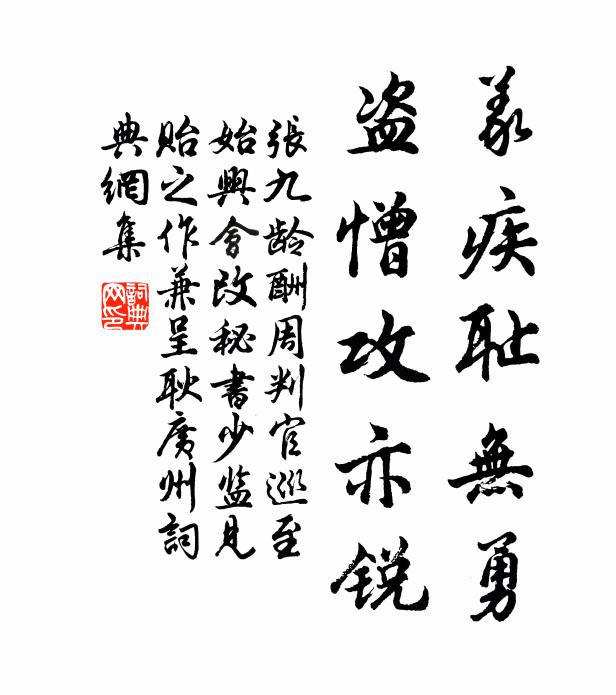 義疾耻無勇
盗憎攻亦鋭
張九龄酬周判官巡至
始興會改秘書少监見
貽之作兼呈耿廣州詞
典網集
詞典
网印